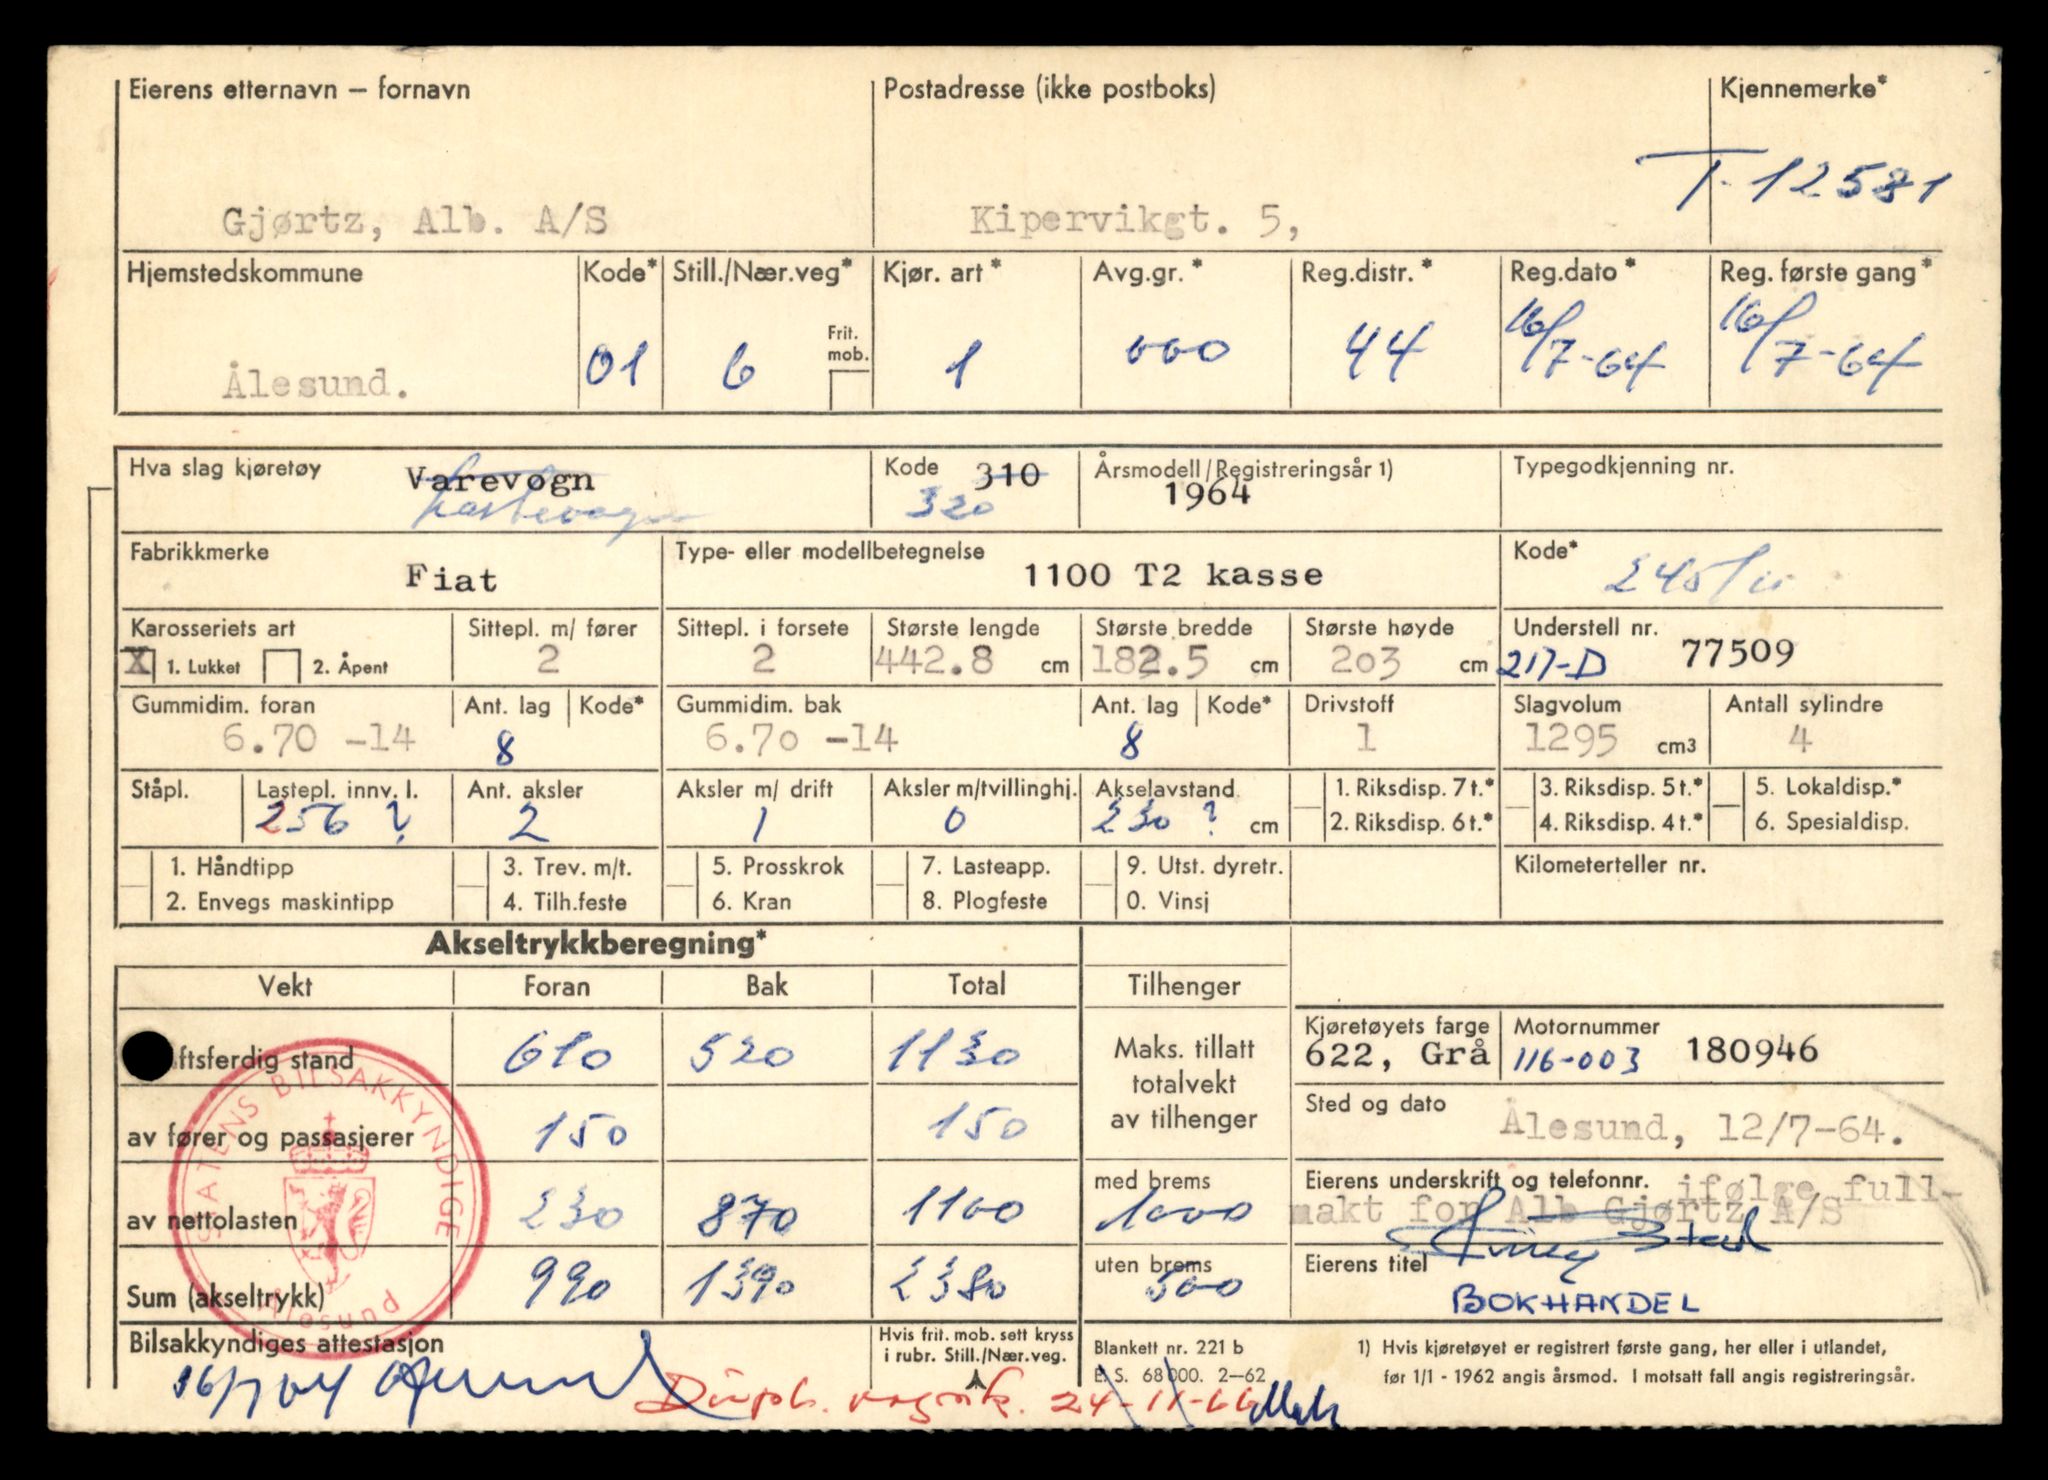 Eierens etternavn – fornavn Postadresse (ikke postboks) Kjennemerke*
T-12581
Gjørtz, Alb. A/S Kipervikgt. 5,
Hjemstedskommune Kode* Still./Nær.veg* Kjør. art* Avg.gr.* Reg.distr.* Reg.dato* Reg. første gang*
Frit. mob.
Ålesund. 01 6 1 000 44 16/7-64 16/7-64
Hva slag kjøretøy Varevogn Kode 310 Årsmodell/Registreringsår 1) Typegodkjenning nr.
Lastevogn 320 1964
Fabrikkmerke Type- eller modellbetegnelse Kode*
Fiat 1100 T2 kasse
Karosseriets art Sittepl. m/ fører Sittepl. i forsete Største lengde Største bredde Største høyde Understell nr.
X 1. Lukket 2. Åpent 2 2 442.8 cm 182.5 cm 203 cm 217-D 77509
Gummidim. foran Ant. lag Kode* Gummidim. bak Ant. lag Kode* Drivstoff Slagvolum Antall sylindre
6.70 -14 8 6.70 -14 8 1 1295 cm3 4
Ståpl. Lastepl. innv. l. Ant. aksler Aksler m/ drift Aksler m/tvillinghj. Akselavstand 1. Riksdisp. 7 t.* 3. Riksdisp. 5 t.* 5. Lokaldisp.*
256 ? 2 1 0 230 ? cm 2. Riksdisp. 6 t.* 4. Riksdisp. 4 t.* 6. Spesialdisp.
1. Håndtipp 3. Trev. m/t. 5. Prosskrok 7. Lasteapp. 9. Utst. dyretr. Kilometerteller nr.
2. Envegs maskintipp 4. Tilh.feste 6. Kran 8. Plogfeste 0. Vinsj
Akseltrykkberegning*
Vekt Foran Bak Total Tilhenger
Kjøretøyets farge Motornummer
ftsferdig stand 610 520 1130 Maks. tillatt 622, Grå 116-003 180946
totalvekt
Sted og dato
av fører og passasjerer 150 150 av tilhenger Ålesund, 12/7-64.
med brems Eierens underskrift og telefonnr. ifølge full-
av nettolasten 230 870 1100 1000 makt for Alb Gjørtz A/S
uten brems Eierens titel
Sum (akseltrykk) 990 1390 2380 500 BOKHANDEL
STATENS BILSAKKYNDIGE
Ålesund
Bilsakkyndiges attestasjon Hvis frit. mob. sett kryss Blankett nr. 221 b 1) Hvis kjøretøyet er registrert første gang, her eller i utlandet,
i rubr. Still./Nær.veg. E. S. 68 000. 2–62 før 1/1 - 1962 angis årsmod. I motsatt fall angis registreringsår.
16/7 64 24-11-66